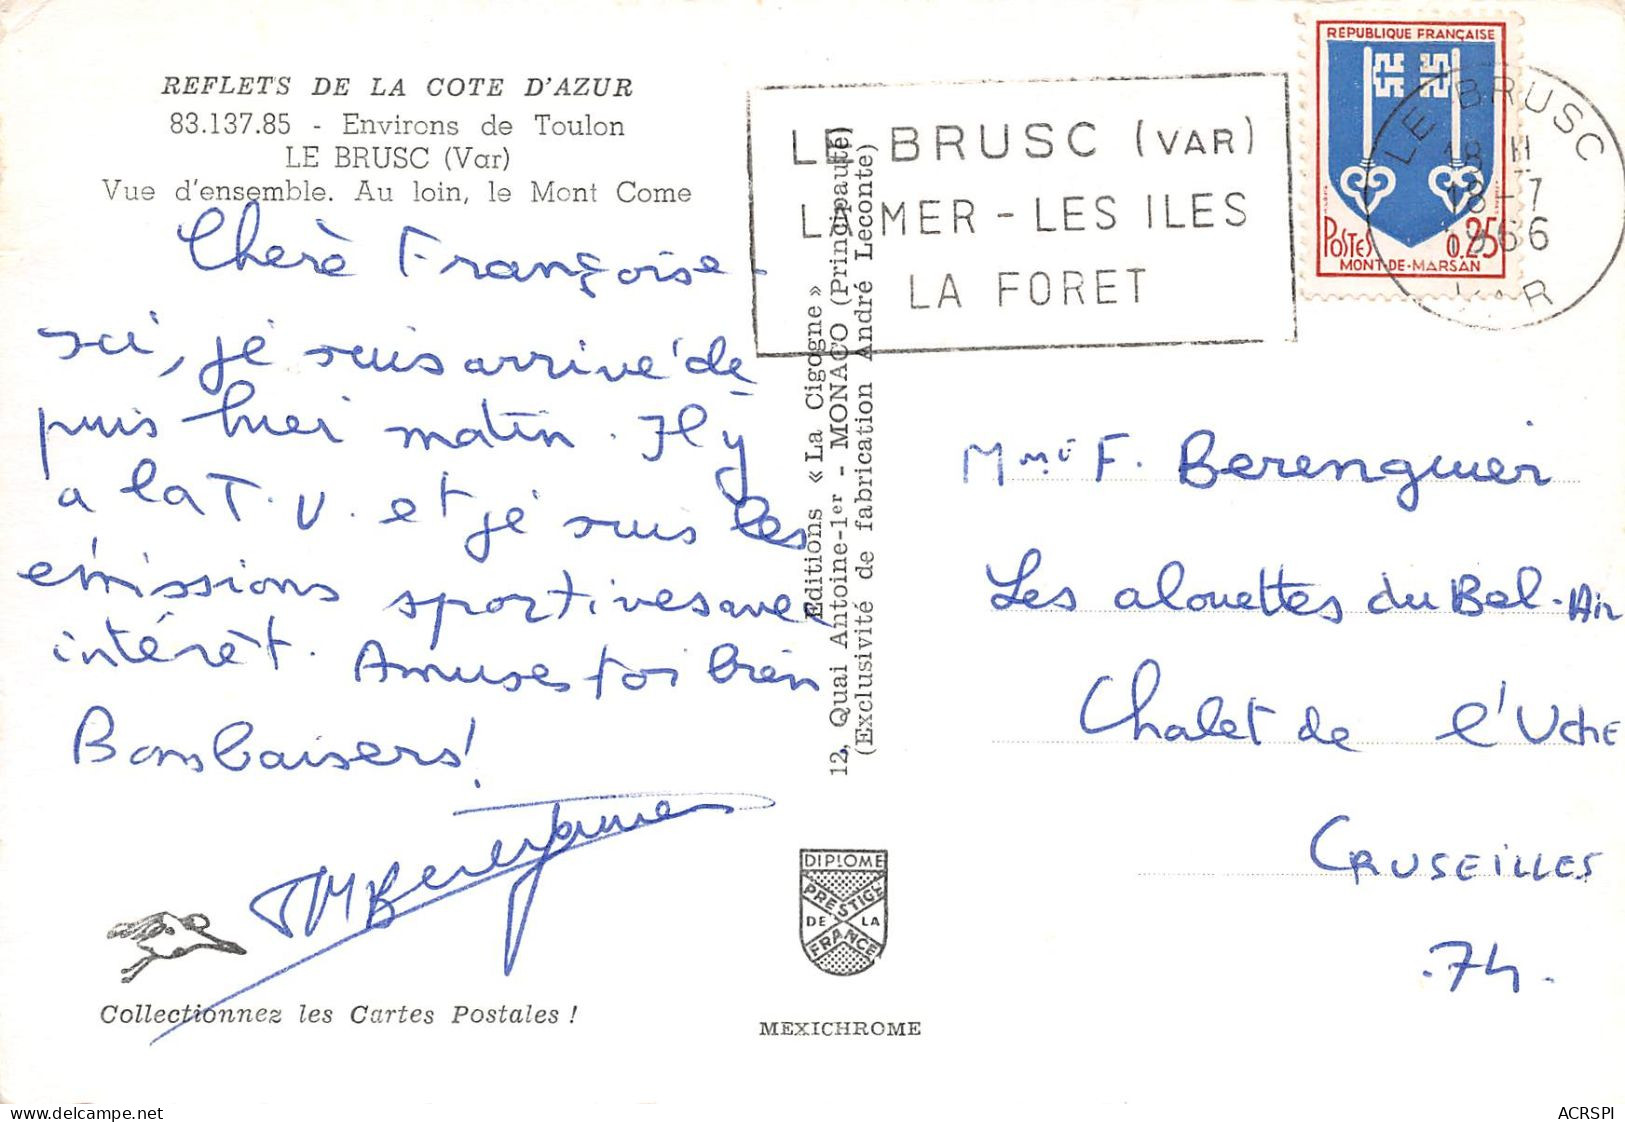 REFLETS DE LA COTE D'AZUR
83.137.85 - Environs de Toulon
LE BRUSC (Var)
Vue d'ensemble. Au loin, le Mont Come
Cherè Françoise -
ici, je suis arrivé de
puis hier matin. Il y
a la T.V. et je suis les
émissions sportives avec
intérêt. Amuses toi bien
Bons baisers!
Collectionnez les Cartes Postales !
Editions « La Cigogne »
12, Quai Antoine-1er - MONACO (Principauté)
(Exclusivité de fabrication André Leconte)
DIPLOME
PRESTIGE
DE LA
FRANCE
MEXICHROME
LE BRUSC (VAR)
LA MER - LES ILES
LA FORET
RÉPUBLIQUE FRANÇAISE
POSTES 0.25
MONT-DE-MARSAN
LE BRUSC
18 H
18-7
1966
VAR
Mme F. Berenguier
Les alouettes du Bel-Air
Chalet de l'Uche
CRUSEILLES
.74.
delcampe.net
ACRSPI